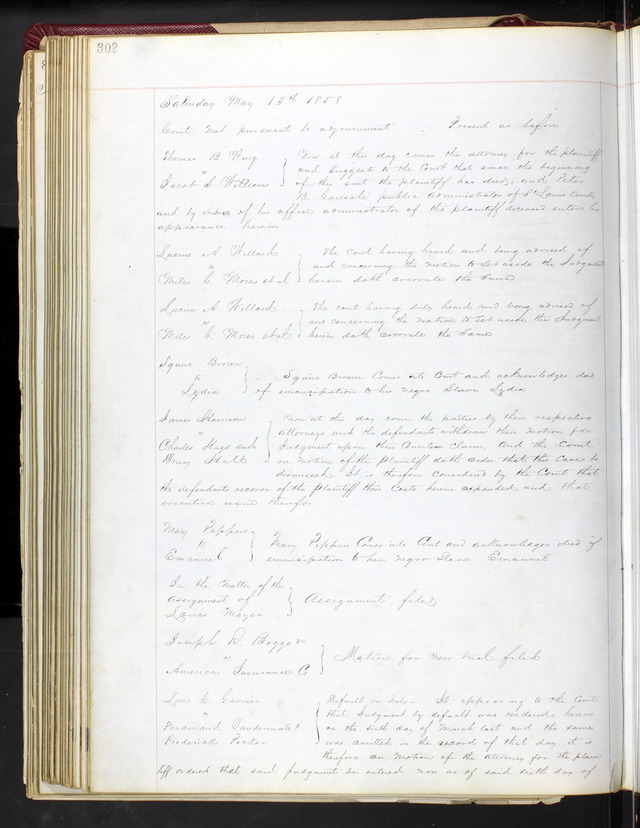 302
Saturday May 15th 1858
Court met pursuant to adjournment Present as before
Thomas B Wing } Now at this day comes the attorney for the plaintiff
vs and suggest to the Court that since the beginning
Jacob S. Williams of this suit the plaintiff has died, and Peter
B. public administrator of St Louis County
and by virtue of his office administrator of the plaintiff deceased enters his
appearance herein
Lucius A Willard } The court having heard and being advised of
vs and concerning the motion to set aside the Judgment
Miles C. Moies et al herein doth overrule the same
Lucius A Willard } The court having duly heard and being advised of
vs and concerning the motion to set aside the Judgment
Miles C Moies et al herein doth overrule the same
Squire Brown
to } Squire Brown Comes into Court and acknowledges deed
Lydia of emancipation to his negro Slave Lydia
James Harrison } Now at this day come the parties by their respective
vs attorneys and the defendants withdraw their motion for
Charles and Judgment upon their Counter Claim, and the Court
Drury Hall on motion of the plaintiff doth order that the case be
dismissed It is therefore considered by the Court that
the defendants recover of the plaintiff their costs herein expended and that
execution issue therefor
Mary Peppers
to } Mary Peppers Comes into Court and acknowledges deed of
Emanuel emancipation to her negro Slave Emanuel
In the matter of the
assignment of } Assignment filed
Mayer
Joseph R. Boggs
vs } Motion for new trial filed
American Insurance Co
Louis C. Garnier } Default on note It appearing to the Court
vs that Judgment by default was rendered herein
Ferdinand Vandermale & on the sixth day of March last and the same
Frederick was omitted in the record of that day, it is
therefore on motion of the attorney for the plain-
tiff ordered that said judgment be entered now as of said sixth day of